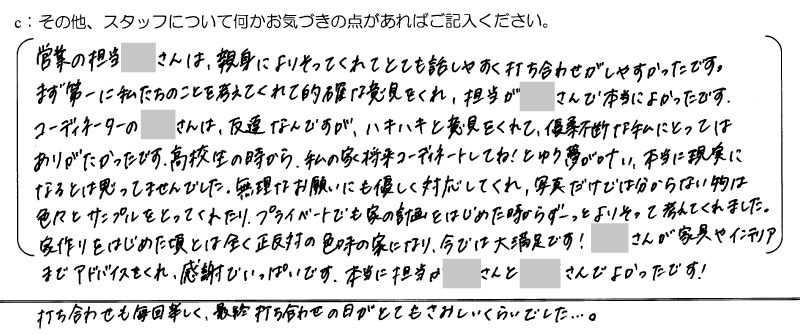 c：その他、スタッフについて何かお気づきの点があればご記入ください。
営業の担当 さんは、親身によりそってくれてとても話しやすく打ち合わせがしやすかったです。
まず第一に私たちのことを考えてくれて的確な意見をくれ、担当が さんで本当によかったです。
コーディネーターの さんは、友達なんですが、ハキハキと意見をくれて、優柔不断な私にとっては
ありがたかったです。高校生の時から、私の家将来コーディネートしてね！とゆう夢が叶い、本当に現実に
なるとは思ってませんでした。無理なお願いにも優しく対応してくれ、写真だけでは分からない物は
色々とサンプルをとってくれたり、プライベートでも家の計画をはじめた時からずーっとよりそって考えてくれました。
家作りをはじめた頃とは全く正反対の色味の家になり、今では大満足です！ さんが家具やインテリア
までアドバイスをくれ、感謝でいっぱいです。本当に担当が さんと さんでよかったです！
打ち合わせも毎回楽しく、最終打ち合わせの日がとてもさみしいくらいでした…。